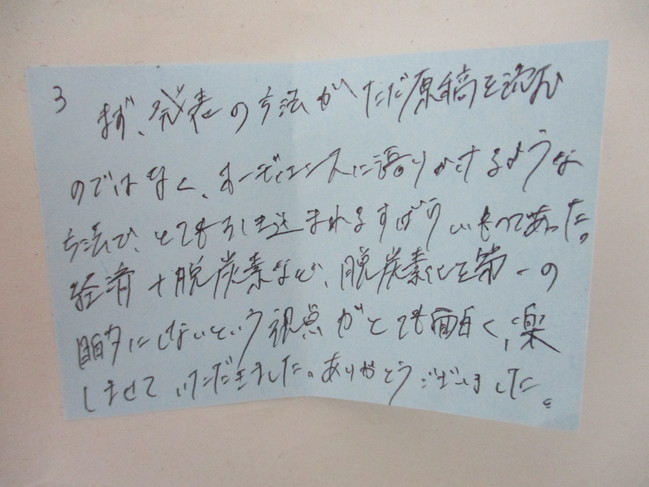 3
まず、発表の方法がただ原稿を読む
のではなく、オーディエンスに語りかけるような
方法で、とても引き込まれるすばらしいものであった。
経済+脱炭素など、脱炭素化を第一の
目的にしないという視点がとても面白く、楽
しませていただきました。ありがとうございました。